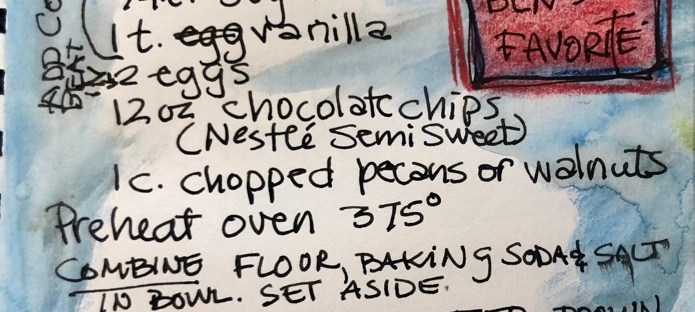 1 t. egg vanilla
2 eggs
12 oz chocolate chips
(Nestlé Semi Sweet)
1 c. chopped pecans or walnuts
Preheat oven 375°
COMBINE FLOOR, BAKING SODA & SALT
IN BOWL. SET ASIDE.
BEN'S
FAVORITE
ADD